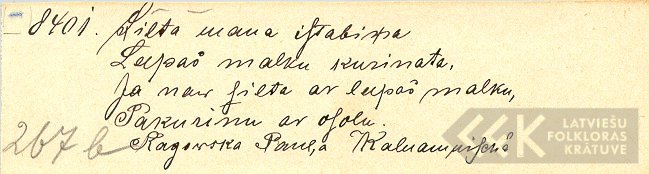 8401. Silta mana istabiņa
Lapas malku kurinata,
Ja naw silta ar lapas malku,
Pakurinu ar osolu.
267 b
Ragowska Pauļa Kalnamuischā
LATVIEŠU
FOLKLORAS
KRĀTUVE